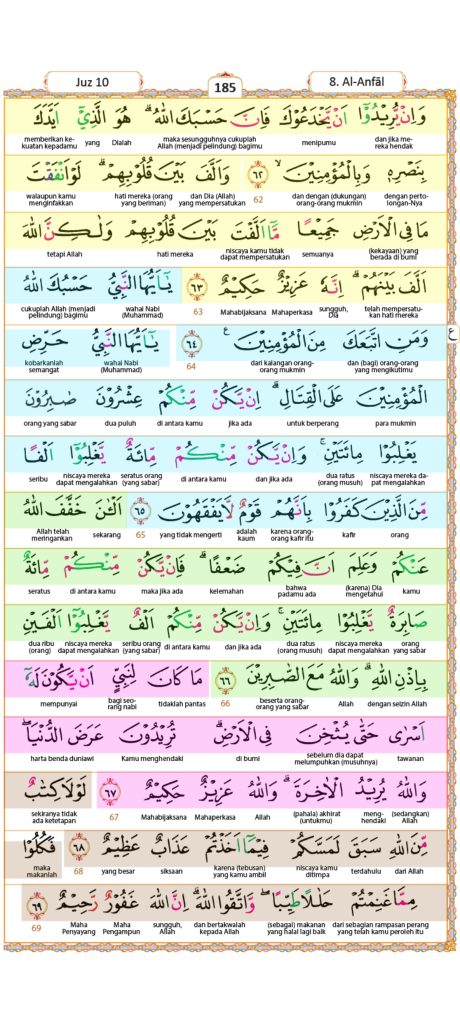 Juz 10
185
8. Al-Anfāl
وَاِنْ يُّرِيْدُوْٓا اَنْ يَّخْدَعُوْكَ فَاِنَّ حَسْبَكَ اللّٰهُ ۗهُوَ الَّذِيْٓ اَيَّدَكَ
dan jika mereka hendak menipumu maka sesungguhnya cukuplah Allah (menjadi pelindung) bagimu Dialah yang memberikan kekuatan kepadamu
بِنَصْرِهٖ وَبِالْمُؤْمِنِيْنَۙ ٦٢ وَاَلَّفَ بَيْنَ قُلُوْبِهِمْۗ لَوْاَنْفَقْتَ
dengan pertolongan-Nya dan dengan (dukungan) orang-orang mukmin 62 dan Dia (Allah) yang mempersatukan hati mereka (orang yang beriman) walaupun kamu menginfakkan
مَا فِى الْاَرْضِ جَمِيْعًا مَّآ اَلَّفْتَ بَيْنَ قُلُوْبِهِمْ وَلٰكِنَّ اللّٰهَ
(kekayaan) yang berada di bumi semuanya niscaya kamu tidak dapat mempersatukan hati mereka tetapi Allah
اَلَّفَ بَيْنَهُمْۗ اِنَّهٗ عَزِيْزٌ حَكِيْمٌ ٦٣ يٰٓاَيُّهَا النَّبِيُّ حَسْبُكَ اللّٰهُ
telah mempersatukan hati mereka sungguh, Dia Mahaperkasa Mahabijaksana 63 wahai Nabi (Muhammad) cukuplah Allah (menjadi pelindung) bagimu
وَمَنِ اتَّبَعَكَ مِنَ الْمُؤْمِنِيْنَ ࣖ ٦٤ يٰٓاَيُّهَا النَّبِيُّ حَرِّضِ
ع
dan (bagi) orang-orang yang mengikutimu dari kalangan orang-orang mukmin 64 wahai Nabi (Muhammad) kobarkanlah semangat
الْمُؤْمِنِيْنَ عَلَى الْقِتَالِۗ اِنْ يَّكُنْ مِّنْكُمْ عِشْرُوْنَ صٰبِرُوْنَ
para mukmin untuk berperang jika ada di antara kamu dua puluh orang yang sabar
يَغْلِبُوْا مِائَتَيْنِۚ وَاِنْ يَّكُنْ مِّنْكُمْ مِّائَةٌ يَّغْلِبُوْٓا اَلْفًا
niscaya mereka dapat mengalahkan dua ratus (orang musuh) dan jika ada di antara kamu seratus orang (yang sabar) niscaya mereka dapat mengalahkan seribu
مِّنَ الَّذِيْنَ كَفَرُوْا بِاَنَّهُمْ قَوْمٌ لَّا يَفْقَهُوْنَ ٦٥ اَلْـٰٔنَ خَفَّفَ اللّٰهُ
orang kafir karena orang-orang kafir itu adalah kaum yang tidak mengerti 65 sekarang Allah telah meringankan
عَنْكُمْ وَعَلِمَ اَنَّ فِيْكُمْ ضَعْفًاۗ فَاِنْ يَّكُنْ مِّنْكُمْ مِّائَةٌ
kamu (karena) Dia mengetahui bahwa padamu ada kelemahan maka jika ada di antara kamu seratus
صَابِرَةٌ يَّغْلِبُوْا مِائَتَيْنِۚ وَاِنْ يَّكُنْ مِّنْكُمْ اَلْفٌ يَّغْلِبُوْٓا اَلْفَيْنِ
orang yang sabar niscaya mereka dapat mengalahkan dua ratus (orang musuh) dan jika ada di antara kamu seribu orang (yang sabar) niscaya mereka dapat mengalahkan dua ribu (orang)
بِاِذْنِ اللّٰهِۗ وَاللّٰهُ مَعَ الصّٰبِرِيْنَ ٦٦ مَاكَانَ لِنَبِيٍّ اَنْ يَّكُوْنَ لَهٗٓ
dengan seizin Allah Allah beserta orang-orang yang sabar 66 tidaklah pantas bagi seorang nabi mempunyai
اَسْرٰى حَتّٰى يُثْخِنَ فِى الْاَرْضِۗ تُرِيْدُوْنَ عَرَضَ الدُّنْيَاۖ
tawanan sebelum dia dapat melumpuhkan (musuhnya) di bumi Kamu menghendaki harta benda duniawi
وَاللّٰهُ يُرِيْدُ الْاٰخِرَةَۗ وَاللّٰهُ عَزِيْزٌ حَكِيْمٌ ٦٧ لَوْلَا كِتٰبٌ
(sedangkan) Allah menghendaki (pahala) akhirat (untukmu) Allah Mahaperkasa Mahabijaksana 67 sekiranya tidak ada ketetapan
مِّنَ اللّٰهِ سَبَقَ لَمَسَّكُمْ فِيْمَآ اَخَذْتُمْ عَذَابٌ عَظِيْمٌ ٦٨ فَكُلُوْا
dari Allah terdahulu niscaya kamu ditimpa karena (tebusan) yang kamu ambil siksaan yang besar 68 maka makanlah
مِمَّا غَنِمْتُمْ حَلٰلًا طَيِّبًاۖ وَّاتَّقُوا اللّٰهَۗ اِنَّ اللّٰهَ غَفُوْرٌ رَّحِيْمٌ ٦٩
dari sebagian rampasan perang yang telah kamu peroleh itu (sebagai) makanan yang halal lagi baik dan bertakwalah kepada Allah sungguh, Allah Maha Pengampun Maha Penyayang 69